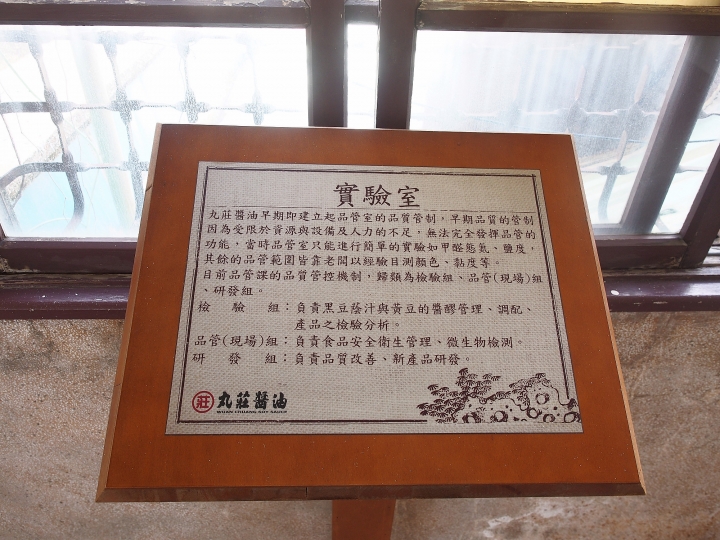 實驗室
丸莊醬油早期即建立起品管室的品質管制，早期品質的管制
因為受限於資源與設備及人力的不足，無法完全發揮品管的
功能，當時品管室只能進行簡單的實驗如甲醛態氮、鹽度，
其餘的品管範圍皆靠老闆以經驗目測顏色、黏度等。
目前品管課的品質管控機制，歸類為檢驗組、品管(現場)組
、研發組。
檢驗組：負責黑豆蔭汁與黃豆的醬醪管理、調配、
產品之檢驗分析。
品管(現場)組：負責食品安全衛生管理、微生物檢測。
研發組：負責品質改善、新產品研發。
莊 丸莊醬油
WUAN CHUANG SOY SAUCE